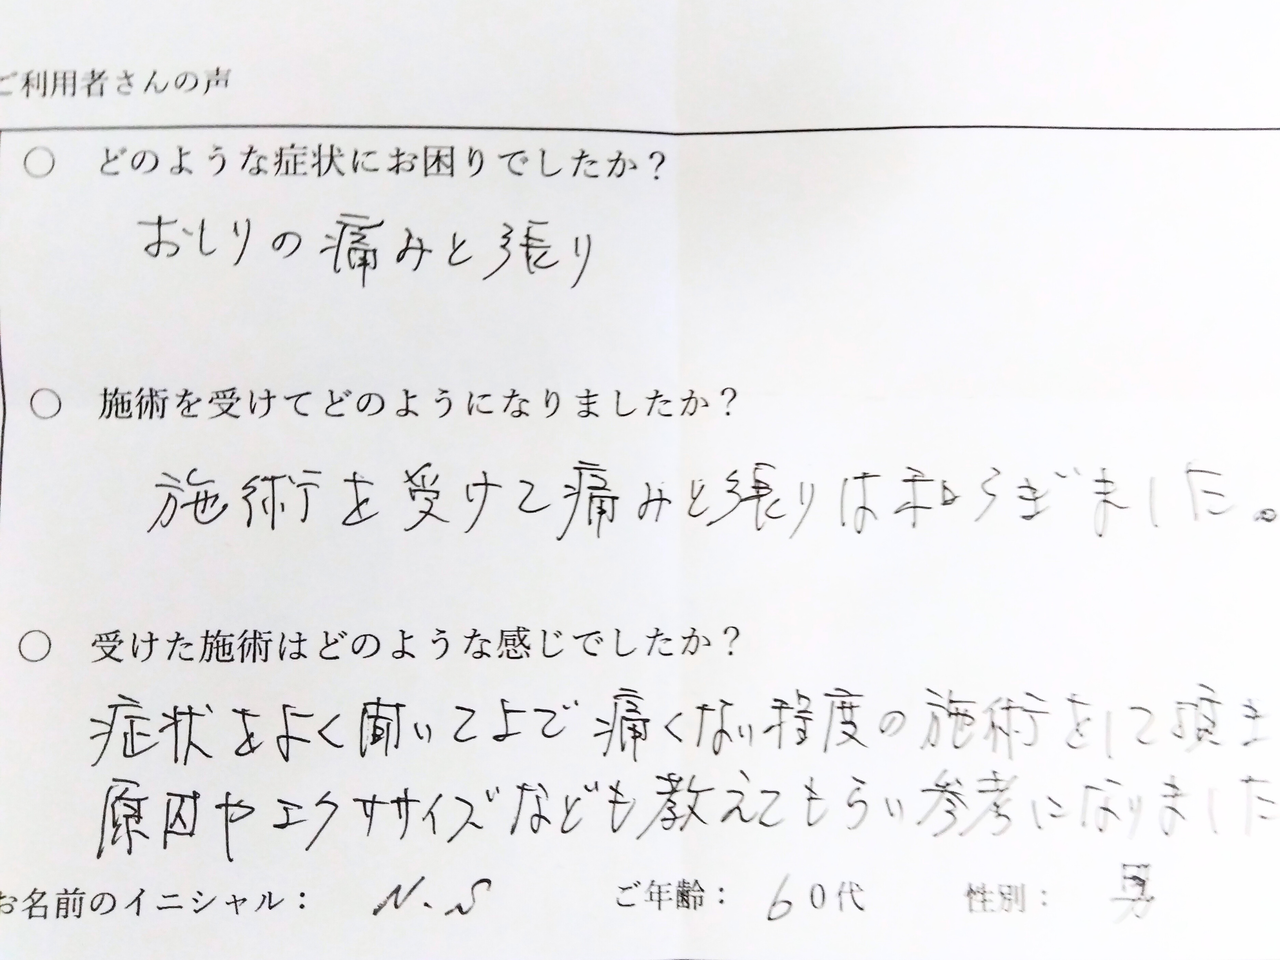 ご利用者さんの声
○ どのような症状にお困りでしたか？
おしりの痛みと張り
○ 施術を受けてどのようになりましたか？
施術を受けて痛みと張りは和らぎました。
○ 受けた施術はどのような感じでしたか？
症状をよく聞いてよで痛くない程度の施術をして頂き
原因やエクササイズなども教えてもらい参考になりました
お名前のイニシャル： N.S ご年齢： 60代 性別： 男